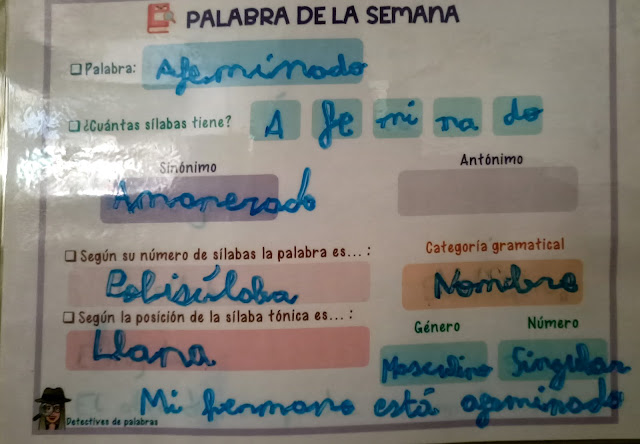 PALABRA DE LA SEMANA
Palabra: Afeminado
¿Cuántas sílabas tiene? A fe mi na do
Sinónimo Antónimo
Amanerado
Según su número de sílabas la palabra es... : Categoría gramatical
Polisílaba Nombre
Según la posición de la sílaba tónica es... : Género Número
Llana Masculino Singular
Mi hermano está afeminado
Detectives de palabras